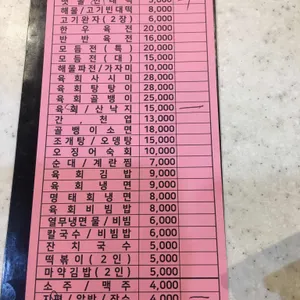 해물/고기빈대떡 8,000
고기완자(2장) 6,000
한우육전 20,000
반반육전 16,000
모듬전(특) 20,000
모듬전(대) 15,000
해물파전/가자미 10,000
육회사시미 28,000
육회탕탕이 28,000
육회골뱅이 25,000
육회/산낙지 15,000
간,천엽 13,000
골뱅이소면 18,000
조개탕/오뎅탕 15,000
오징어숙회 10,000
순대/계란찜 7,000
육회김밥 9,000
육회냉면 9,000
명태회냉면 8,000
육회비빔밥 8,000
열무냉면물/비빔 6,000
칼국수/비빔밥 6,000
잔치국수 5,000
떡볶이(2인) 5,000
마약김밥(2인) 5,000
소주/맥주 4,000
4,000